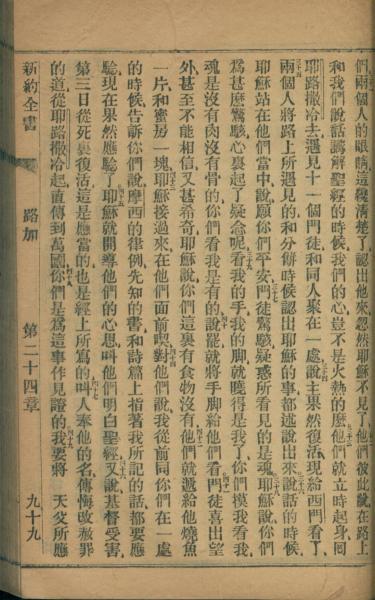 們兩個人的眼睛這纔清楚了認出他來忽然耶穌不見了他們彼此就在路上
和我們說話講解聖經的時候我們的心豈不是火熱的麽他們就立時起身同
耶路撒冷去遇見十一個門徒和同人聚在一處說主果然復活現給西門看了
兩個人將路上所遇見的和分餅時候認出耶穌的事都述說出來說話的時候
耶穌站在他們當中說願你們平安門徒驚駭疑惑所看見的是魂耶穌說你們
爲甚麽驚駭心裏起了疑念呢看我的手我的脚就曉得是我了你們摸我看我
魂是沒有肉沒有骨的你們看我是有的說罷就將手脚給他們看門徒喜出望
外甚至不能相信又甚希奇耶穌說你們這裏有食物沒有他們就遞給他燒魚
一片和蜜房一塊耶穌接過來在他們面前喫對他們說我從前同你們在一處
的時候告訴你們說摩西的律例先知的書和詩篇上指著我所記的話都要應
驗現在果然應驗了耶穌就開導他們的心思叫他們明白聖經又說基督受害
第三日從死裏復活這是應當的也是經上所寫的叫人奉他的名傳悔改赦罪
的道從耶路撒冷起直傳到萬國你們是爲這事作見證的我要將 天父所應
新約全書 路加 第二十四章 九十九